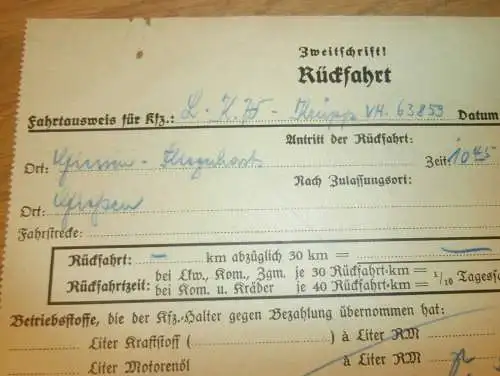 Zweitschrift!
Rückfahrt
Fahrtausweis für Kfz.: L-K.75 - Krupp VH. 63853 Datum
Antritt der Rückfahrt:
Ort: Giessen - Fliegerhorst Zeit: 10 45
Nach Zulassungsort:
Ort: Gießen
Fahrstrecke:
Rückfahrt: – km abzüglich 30 km = –
Rückfahrizeit: bei Lkw., Kom., Zgm. je 30 Rückfahrt-km = 1/10 Tagessa
bei Kom. u. Kräder je 40 Rückfahrt-km =
Betriebsstoffe, die der Kfz.-Halter gegen Bezahlung übernommen hat:
Liter Kraftstoff ( ) à Liter RM
Liter Motorenöl à Liter RM